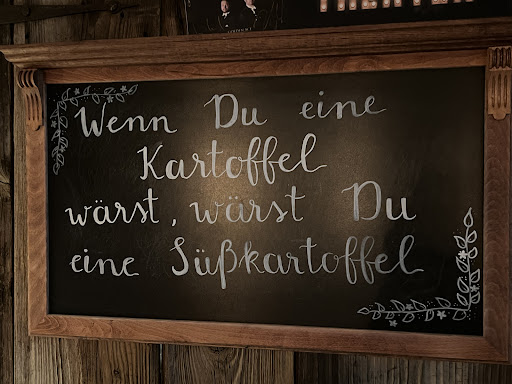 Wenn Du eine
Kartoffel
wärst, wärst Du
eine Süßkartoffel